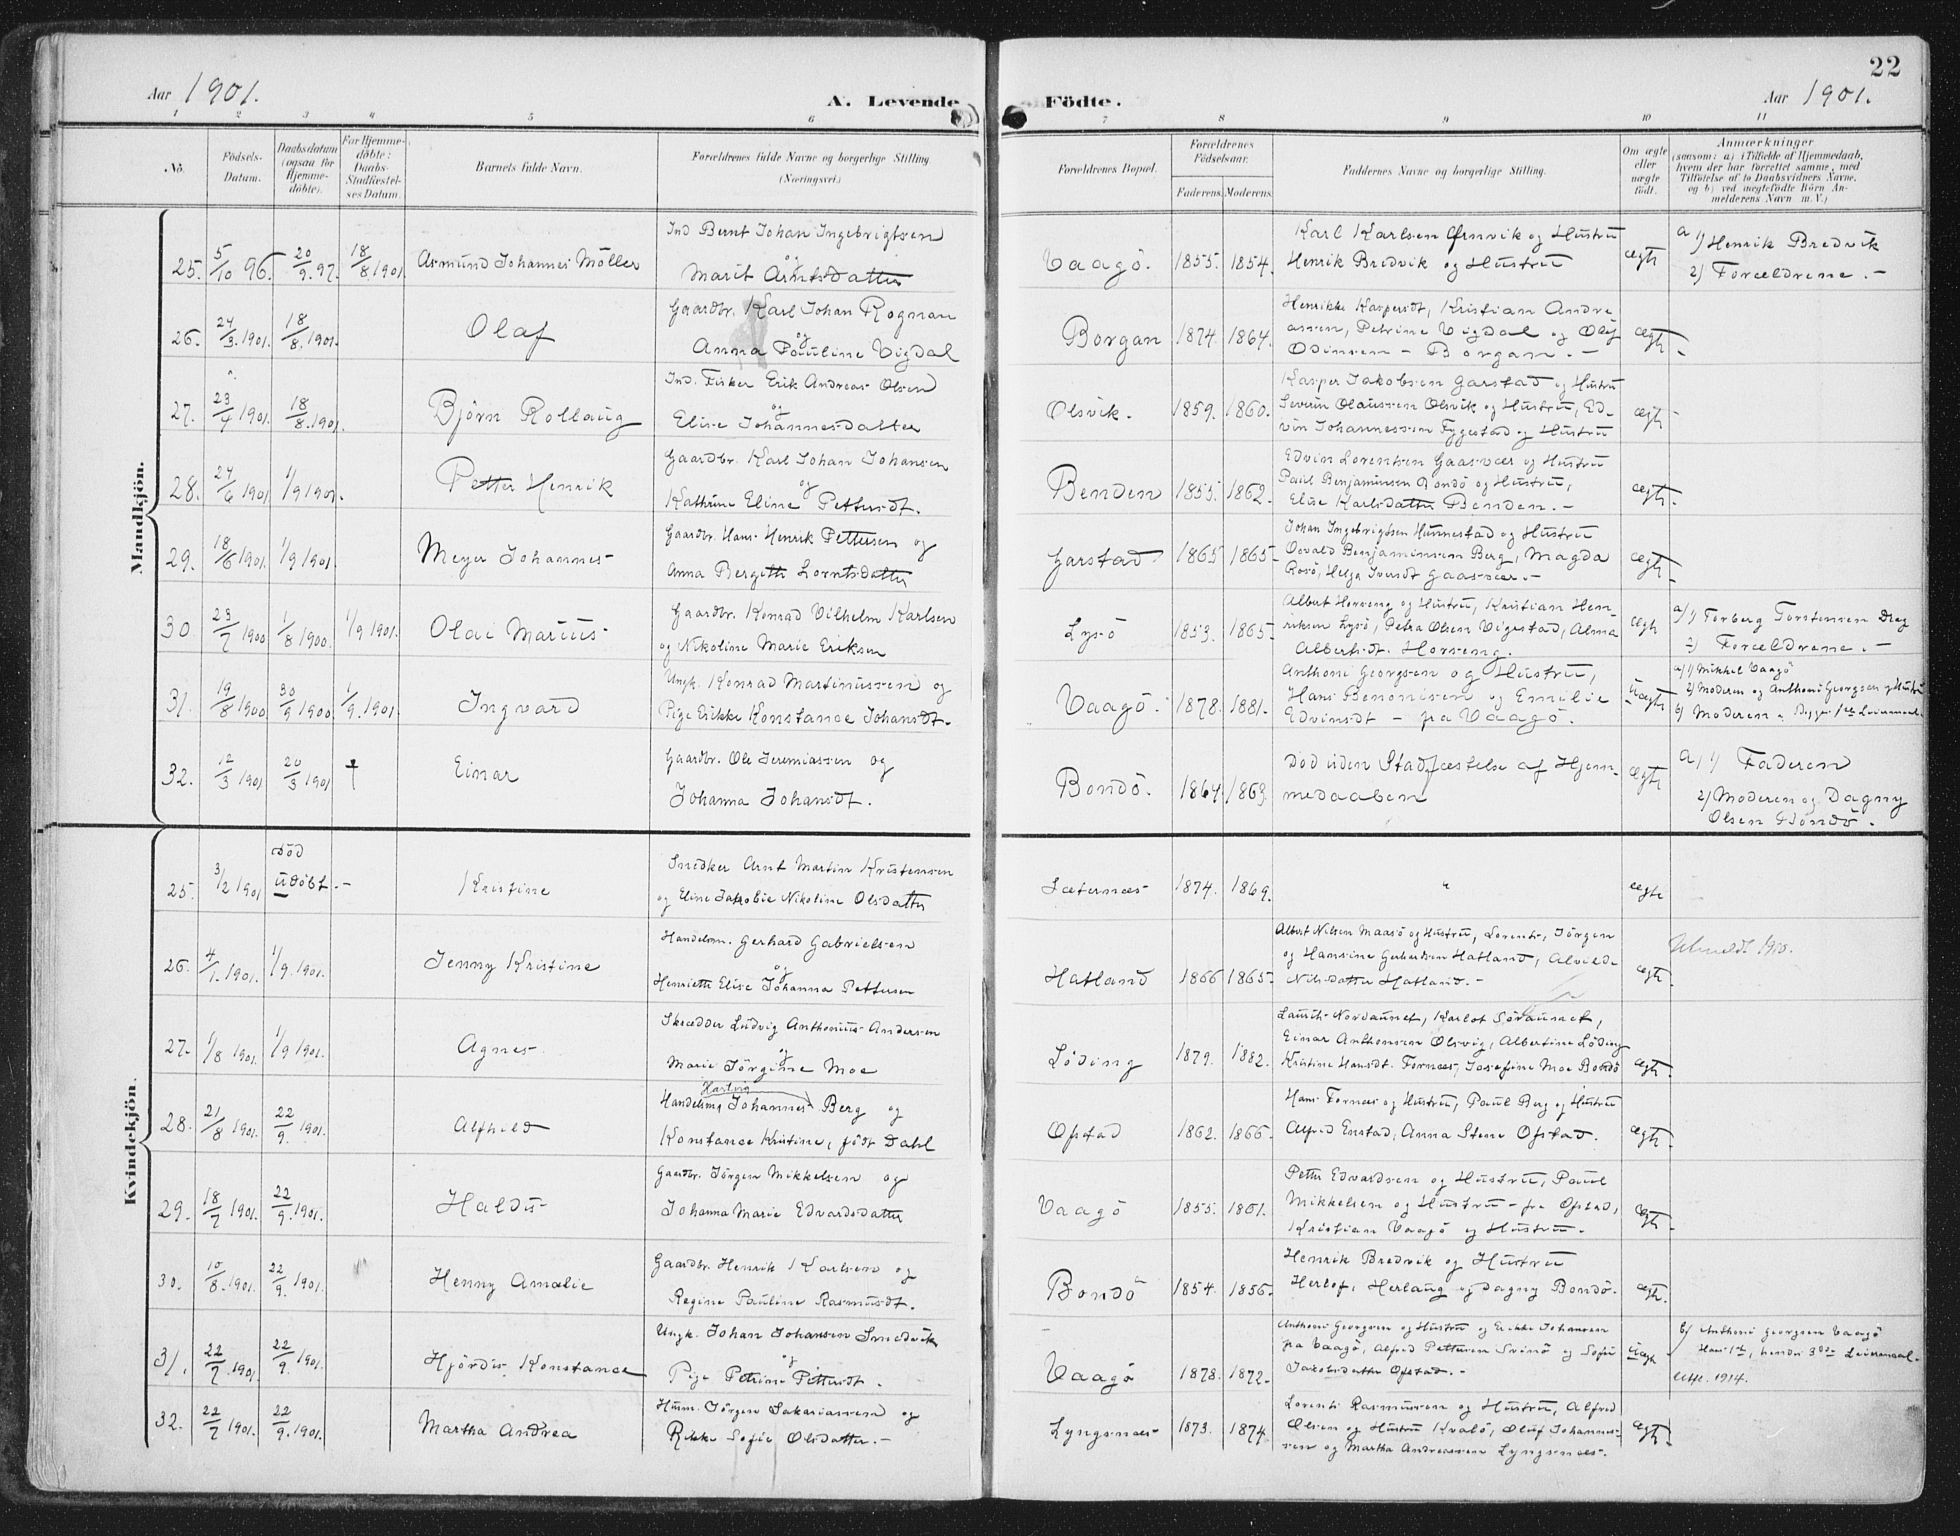 22
Aar 1901.
A. Levende Födte.
Aar 1901.
1 2 3 4 5 6 7 8 9 10 11
No.
Födsels-Datum.
Daabsdatum (ogsaa for Hjemmedöbte).
For Hjemmedöbte: Daabs-Stadfæstelses Datum.
Barnets fulde Navn.
Forældrenes fulde Navne og borgerlige Stilling. (Næringsvei.)
Forældrenes Bopæl.
Forældrenes Födselsaar.
Faderens. Moderens.
Faddernes Navne og borgerlige Stilling.
Om ægte eller uægte födt.
Anmærkninger
(saasom: a) i Tilfælde af Hjemmedaab,
hvem der har forrettet samme, med
Tilföielse af to Daabsvidners Navne,
og b) ved uægtefödte Börn An-
melderens Navn m. V.)
Mandkjön.
25. 5/10 96. 20/9.97. 18/8 1901 Asmund Johannes Möller
Ind Bernt Johan Ingebrigtsen
og
Marit Arntsdatter
Vaagö. 1855. 1854.
Karl Karlsen Ørnvik og Hustru
Henrik Bredvik og Hustru
ægte
a 1) Henrik Bredvik
2) Forældrene. -
26. 24/3 1901. 18/8. 1901. Olaf
Gaardbr. Karl Johan Rognan
og
Anna Pauline Vigdal
Borgan 1874. 1864.
Henrikke Kaspersdt, Kristian Andre
assen, Petrine Vigdal og Olaf
Odinsen - Borgan. -
ægte
27. 23/4 1901. 18/8. 1901. Björn Rollaug
Ind. Fisker Erik Andreas Olsen
og
Elise Johannesdatter
Olsvik. 1859. 1860.
Kasper Jakobsen Garstad og Hustru
Severin Olaussen Olsvik og Hustru, Ed-
vin Johannessen Fyggestad og Hustru
ægte
28. 24/6 1901 1/9 1901. Petter Henrik
Gaardbr. Karl Johan Johansen
og
Kathrine Eline Pettersdt.
Benden 1855. 1862.
Edvin Lorentsen Gaasvær og Hustru
Paul Benjaminsen Bondö og Hustru,
Elise Karlsdatter Benden. -
ægte
29. 18/6 1901. 1/9 1901 Meyer Johannes
Gaardbr. Hans Henrik Pettersen og
Anna Bergette Lorntsdatter
Garstad 1865 1865
Johan Ingebrigtsen Hunnestad og Hustru
Osvald Benjaminsen Berg, Magda
Rosö, Helga Iversdt Gaasvær. -
ægte
30 23/7 1900 1/8 1900. 1/9 1901. Olai Marius
Gaardbr. Konrad Vilhelm Karlsen
og Nikoline Marie Eriksen
Lysö 1853. 1865
Albert Horseng og Hustru, Kristian Hen
riksen Lysö, Petra Olsen Vigestad, Alma
Albertsdt. Horseng.
ægte
a) 1) Torberg Torstensen Drag
2) Forældrene. -
31. 19/8 1900 30/9 1900. 1/9. 1901. Ingvard
Ungk. Konrad Martinussen og
Pige Erikke Konstance Johansdt.
Vaagö. 1878. 1881.
Anthoni Georgsen og Hustru,
Hans Benonisen og Emilie
Edvinsdt - fra Vaagö.
uægte
a) 1) Mikkel Vaagö
2) Moderen og Anthoni Georgsen og Hustru
b) Moderen. Begges 1ste Leiermaal.
32. 12/3 1901 20/3 1901 † Einar
Gaardbr. Ole Jeremiassen og
Johanna Johansdt.
Bondö. 1864 1863
Död uden Stadfæstelse af Hjem-
medaaben
ægte
a) 1) Faderen
2) Moderen og Dagny
Olsen Bondö.
Kvindekjön.
25. 3/2 1901 Död udöbt. - Kristine
Snedker Arnt Martin Kristensen
og Eline Jakobie Nikoline Olsdatter
Sæternæs 1874. 1869.
"
ægte
26. 4/1. 1901. 1/9. 1901. Jenny Kristine
Handelsm. Gerhard Gabrielsen
og
Henriette Elise Johanna Pettersen
Hatland 1866 1865
Albert Nilsen Maasö og Hustru, Lorents, Jörgen
og Hansine Gerhardsen Hatland, Alvilde
Nilsdatter Hatland. -
ægte
Utmeldt 1910.
27. 1/8 1901. 1/9 1901. Agnes
Skrædder Ludvig Anthonius Andersen
og
Marie Jörgine Moe
Löding 1879. 1882.
Laurits Nordaunet, Karlot Söraunet,
Einar Anthonsen Olsvig, Albertine Löding
Kristine Hansdt. Fornæs, Josefine Moe Bondö
ægte
28. 21/8 1901. 22/9. 1901. Alfhild
Hartvig
Handelsmg Johannes Berg og
Konstance Kristine, födt Dahl
Ofstad 1862. 1866.
Hans Fornæs og Hustru, Paul Berg og Hustru
Alfred Enstad, Anna Stene Ofstad.
ægte
29. 18/7 1901. 22/9. 1901. Haldis
Gaardbr. Jörgen Mikkelsen og
Johanna Marie Edvardsdatter
Vaagö 1855. 1861.
Petter Edvardsen og Hustru, Paul
Mikkelsen og Hustru - fra Ofstad,
Kristian Vaagö og Hustru.
ægte
30. 10/8. 1901. 22/9 1901 Henny Amalie
Gaardbr. Henrik Karlsen og
Regine Pauline Rasmusdt.
Bondö 1854. 1856.
Henrik Bredvik og Hustru
Herlof, Herlaug og Dagny Bondö.
ægte
31. 22/7 1901 22/9. 1901. Hjördis Konstance
Ungk. Johan Johansen Smedvik
og
Pige Petrine Pettersdt.
Vaagö 1878. 1872.
Anthoni Georgsen og Hustru og Erikke Johansen
fra Vaagö, Alfred Pettersen Svinö og Sofie
Jakobsdatter Ofstad. -
uægte
b) Anthoni Georgsen Vaagö
Hans 1ste, hendes 3die Leiermaal.
1914.
32. 22/7 1901. 22/9. 1901. Martha Andrea
Husm. Jörgen Sakariassen og
Rikke Sofie Olsdatter. -
Lyngsnæs 1873. 1874
Lorents Rasmussen og Hustru, Alfred
Olsen og Hustru Kvalö, Oluf Johannes-
sen og Martha Andreassen Lyngsnæs.
ægte